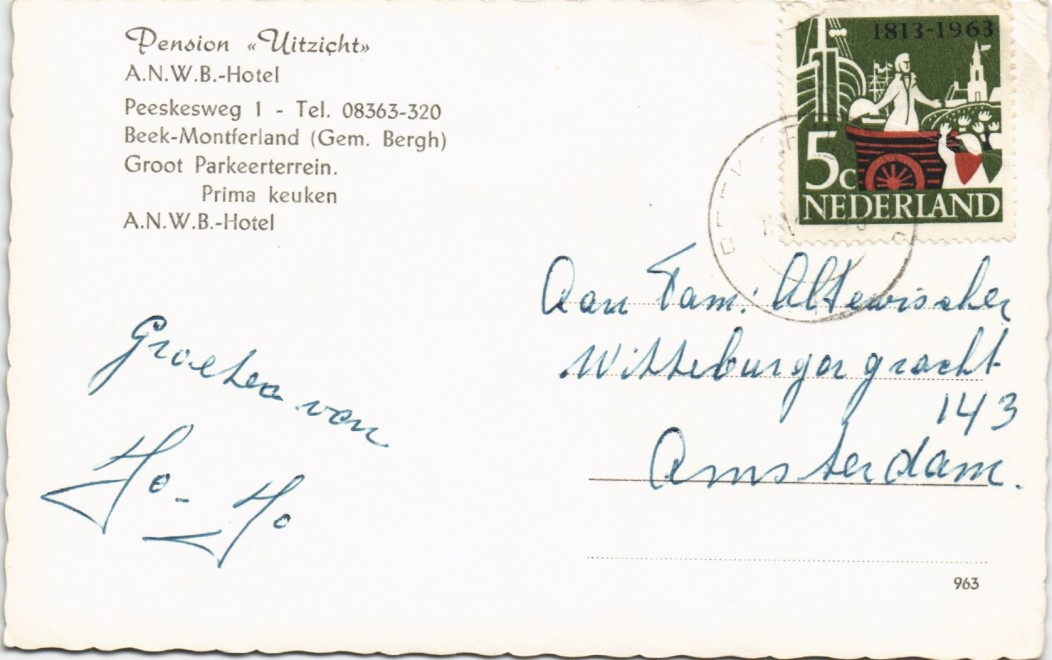 Pension «Uitzicht»
A.N.W.B.-Hotel
Peeskesweg 1 - Tel. 08363-320
Beek-Montferland (Gem. Bergh)
Groot Parkeerterrein.
Prima keuken
A.N.W.B.-Hotel
1813-1963
5c
NEDERLAND
Aan Fam: Altewischer
Wittenburgergracht
143
Amsterdam.
Groeten van
Jo - Jo
963